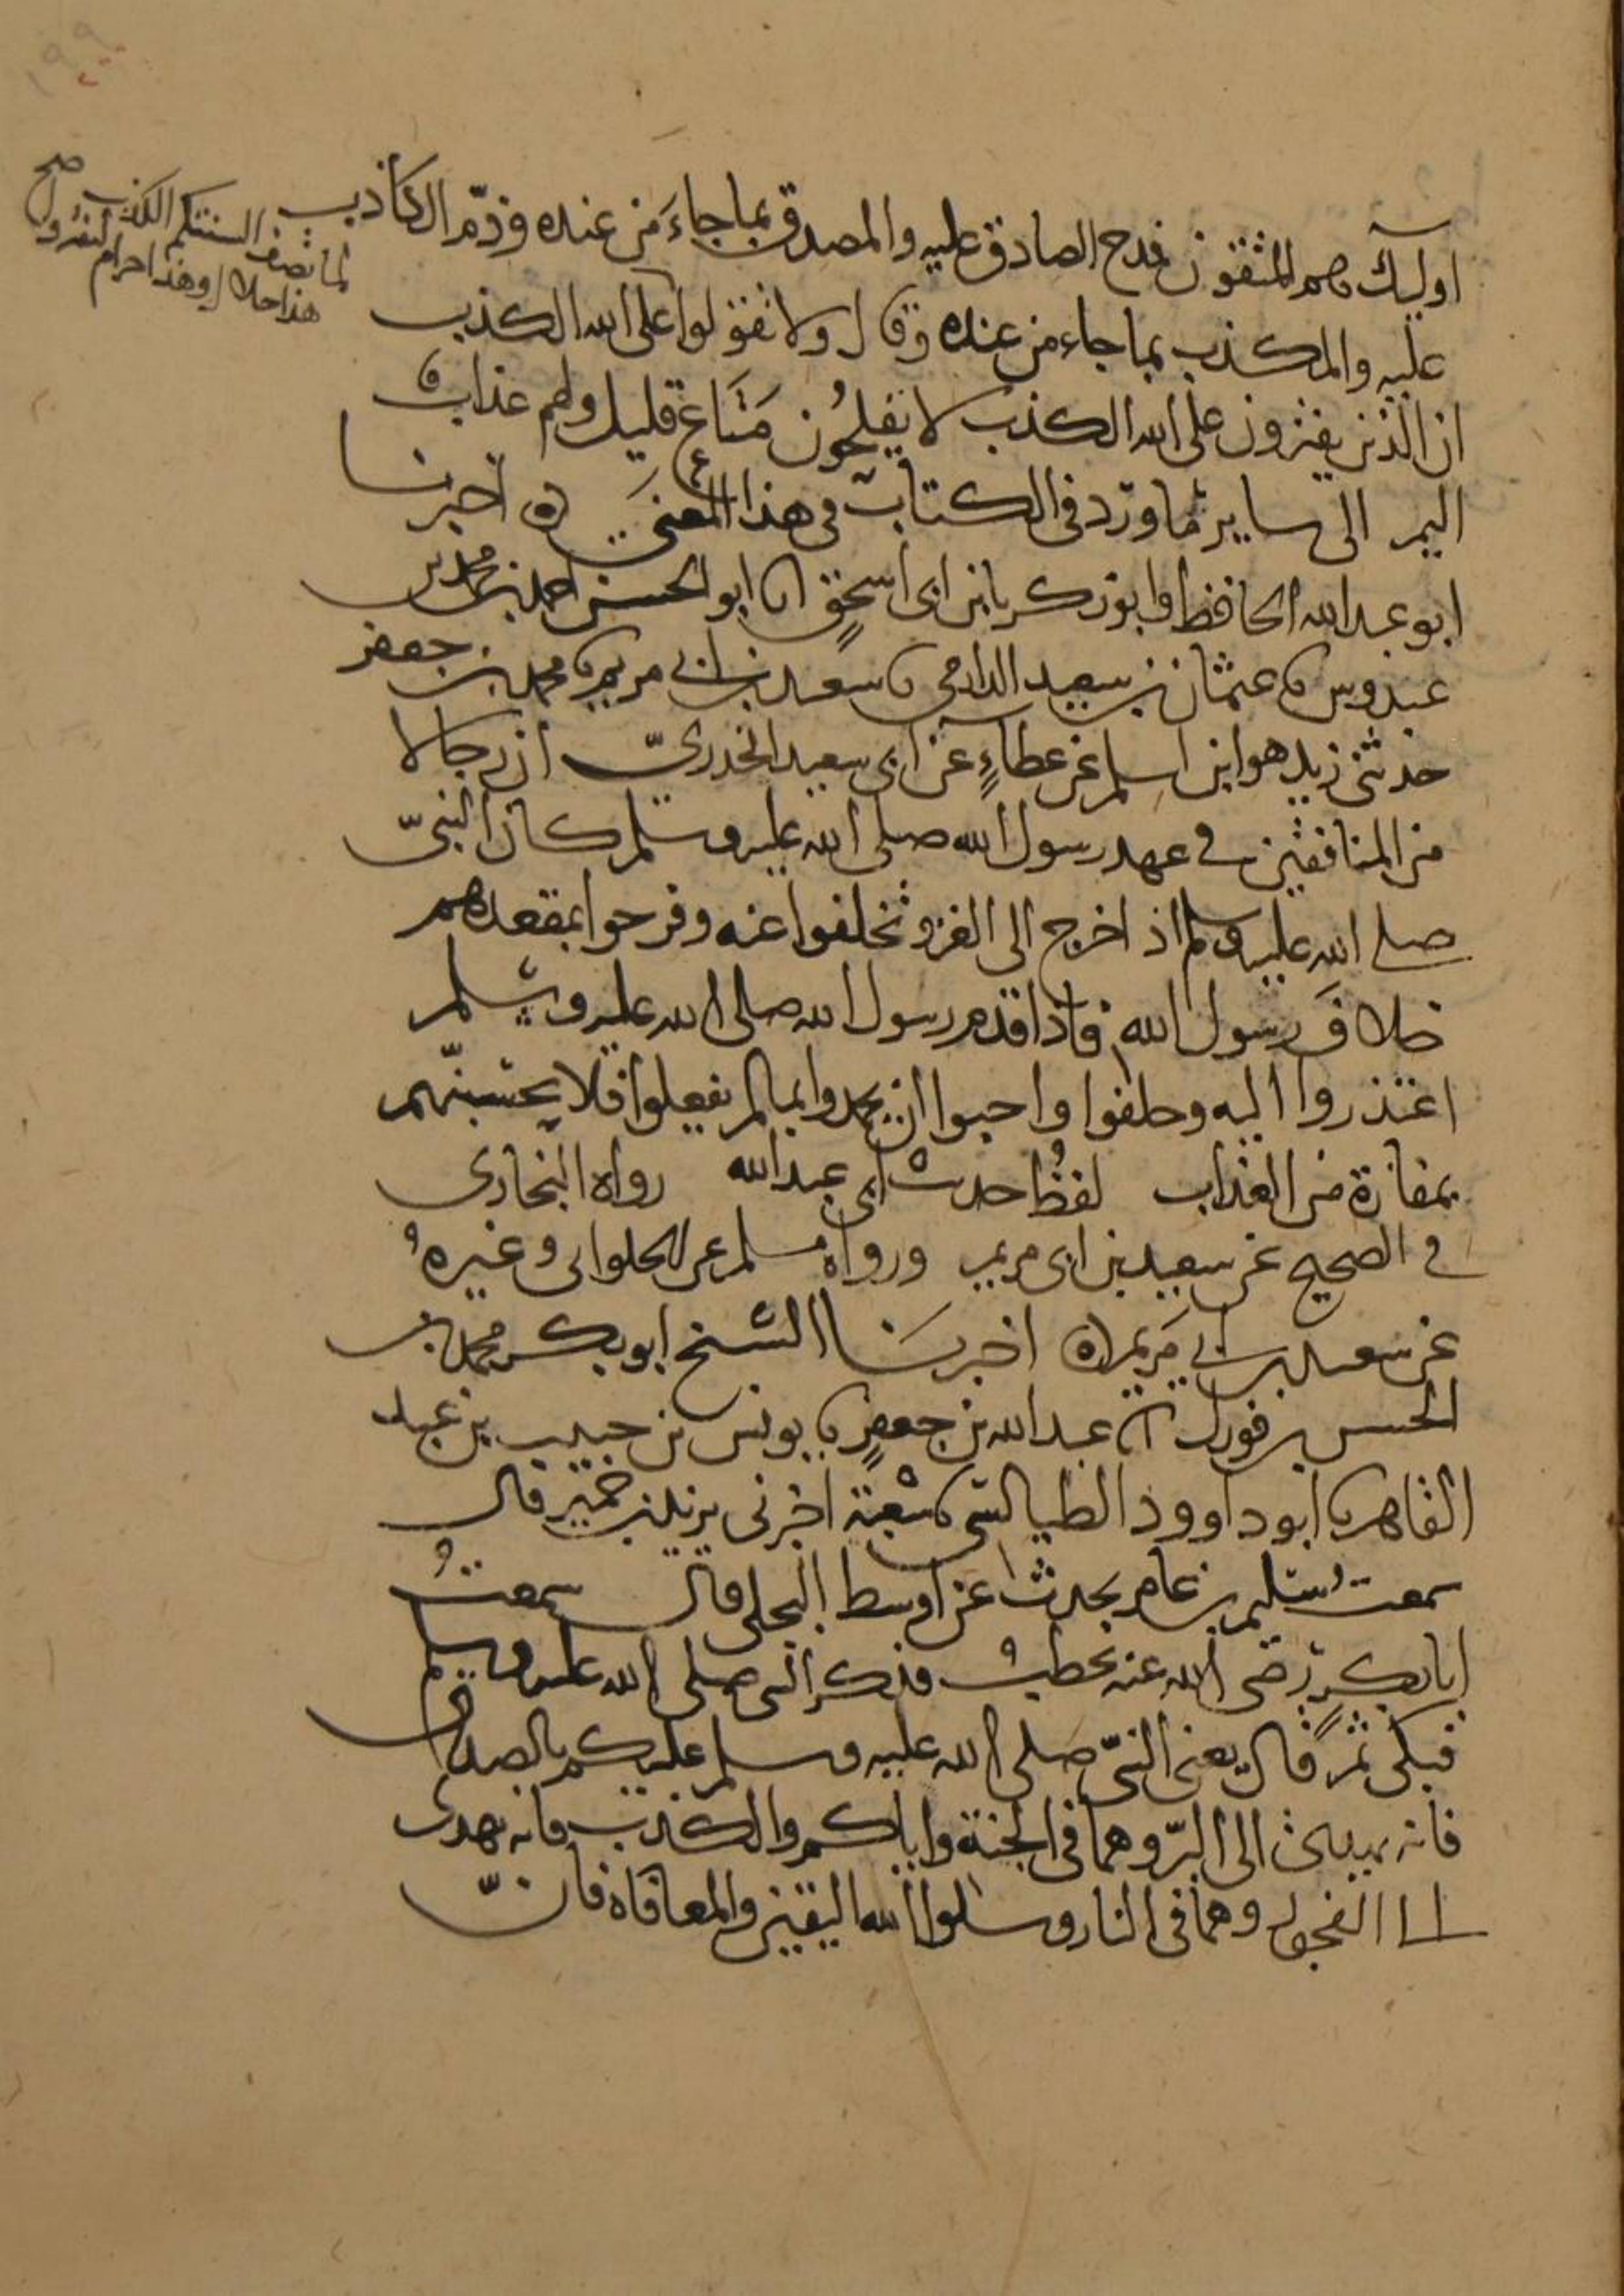 ١٩٩
اوليك هم المتقون فمدح الصادق عليه والمصدق بما جاءَ من عنده وذمّ الكاذب
عليه والمكذب بما جاء من عنده وقال ولا تقولوا على الله الكذب
لما تصف السنتكم الكذب صح
هذا حلال وهذا حرام لتفتروا
ان الذين يفترون على الله الكذب لا يفلحُون مَتَاع قليل ولهم عذاب
اليم الى ساير ما ورد في الكتاب في هذا المعنى ه اخبرنا
ابو عبد الله الحافظ وابو زكريا بن ابي اسحٰق انا ابو الحسن احمد بن محمد بن
عبدوس نا عثمان بن سعيد الدارمي نا سعيد بن ابي مريم نا محمد بن جعفر
حدثني زيد هو ابن اسلم عن عطاءٍ عن ابي سعيد الخدريّ ان رجالا
من المنافقين في عهد رسول الله صلى الله عليه وسلم كان النبيّ
صلى الله عليه وسلم اذا خرج الى الغزو تخلفوا عنه وفرحوا بمقعدهم
خلافَ رسول الله فاذا قدم رسول الله صلى الله عليه وسلم
اعتذروا اليه وحلفوا واحبوا ان يحمدوا بما لم يفعلوا فلا يحسبنّهم
بمفازة من العذاب لفظُ حديث ابي عبد الله رواه البخاري
في الصحيح عن سعيد بن ابي مريم ورواه مسلم عن الحلواني وغيرهُ
عن سعيد بن ابي مَريم ه اخبرنَا الشيخ ابو بكر محمد بن
الحسن بن فورك انا عبد الله بن جعفرٍ نا يونس بن حبيب بن عبد
القاهر نا ابو داوود الطيالسي نا شعبة اخبرني يزيد بن خمير قال
سمعت سُليم بن عامر يحدث عن اوسط البجلي قال سمعتُ
ابا بكرٍ رضي الله عنه يخطبُ فذكر النبي صلى الله عليه وسلم
فبكى ثم قال يعني النبيّ صلى الله عليه وسلم عليكم بالصدق
فانه يهدى الى البرّ وهما في الجنة واياكم والكذب فانه يهدى
الى الفجور وهما في النار وسلوا الله اليقين والمعافاة فانّ